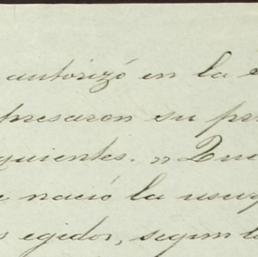 autorizó en la
presaron su pr
quientes. » Que
nació la usurp
egidos, segun la